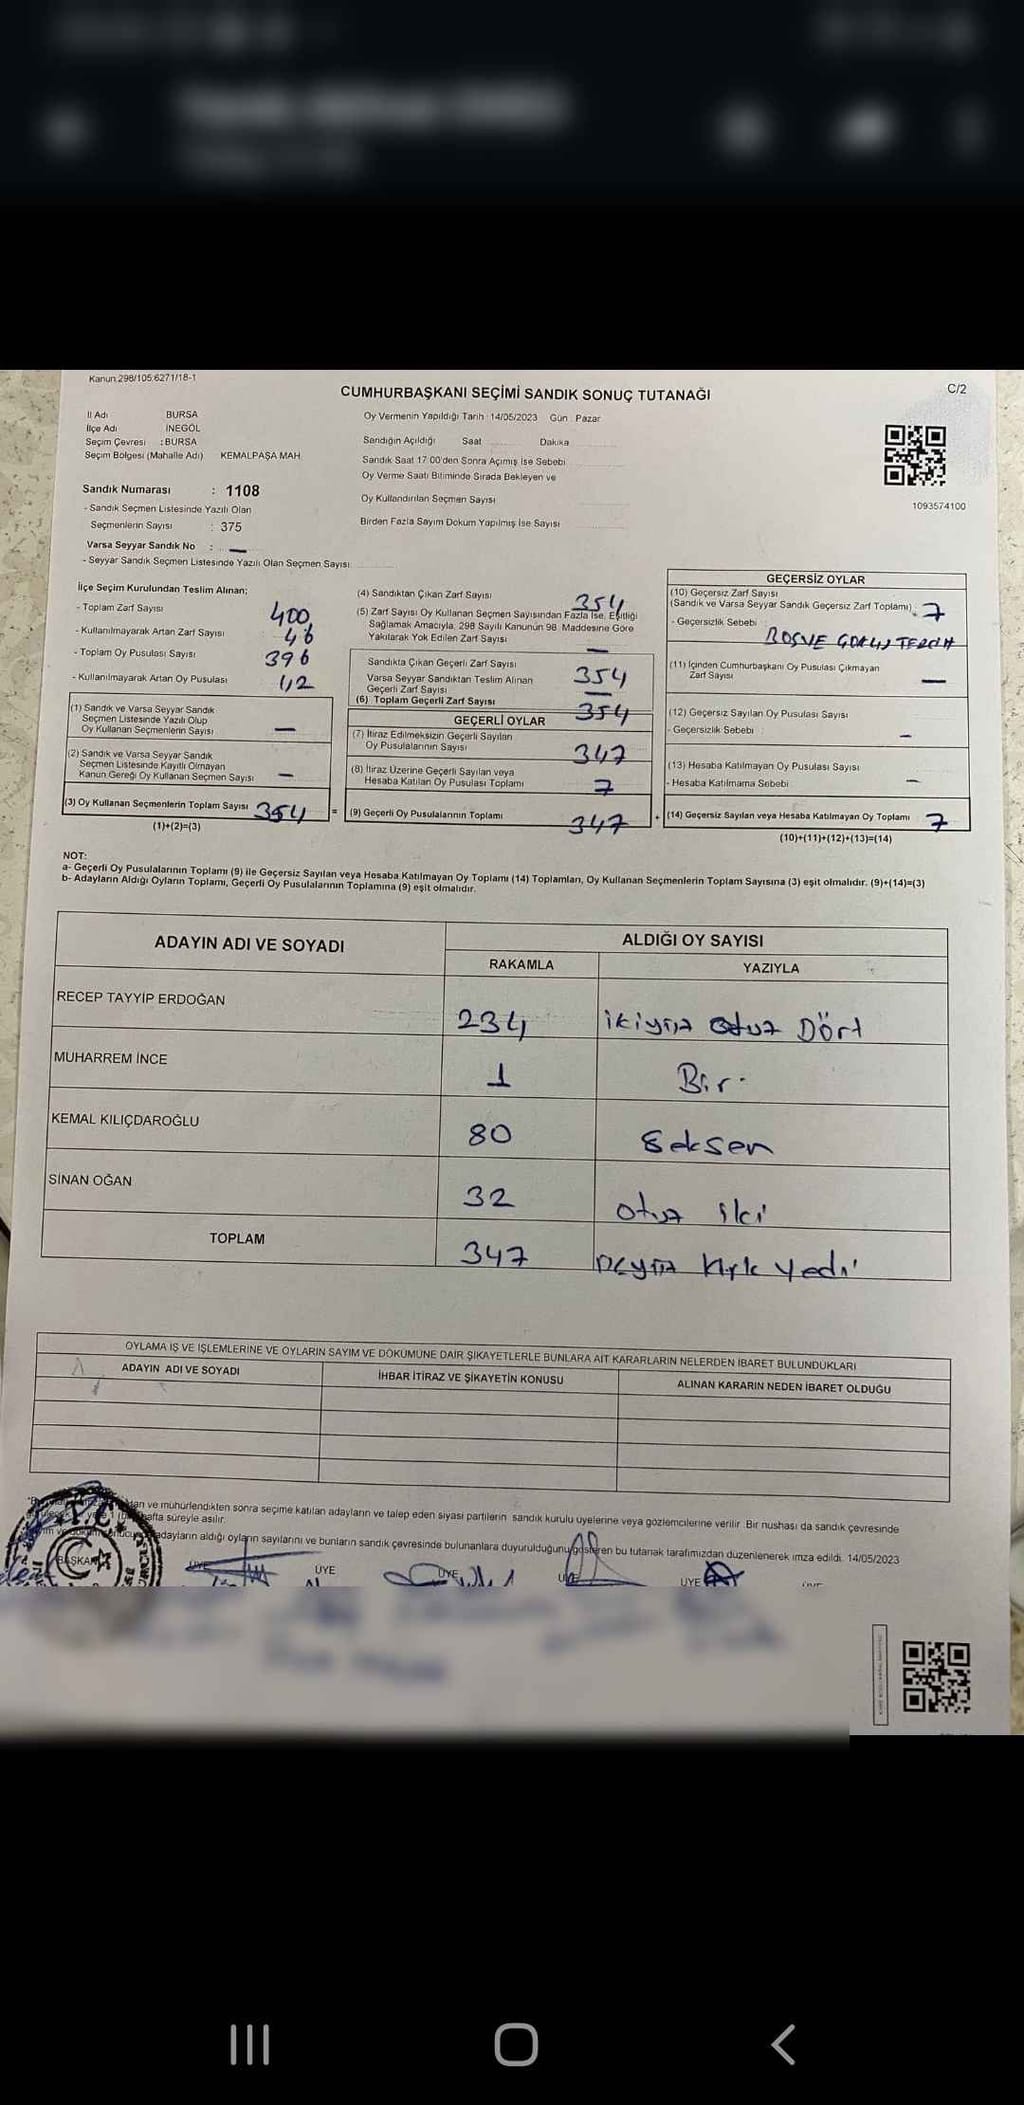 Kanun 298/105 6271/18-1
CUMHURBAŞKANI SEÇİMİ SANDIK SONUÇ TUTANAĞI
C/2
İl Adı BURSA
İlçe Adı İNEGÖL
Seçim Çevresi : BURSA
Seçim Bölgesi (Mahalle Adı) KEMALPAŞA MAH
Sandık Numarası : 1108
- Sandık Seçmen Listesinde Yazılı Olan
Seçmenlerin Sayısı : 375
Varsa Seyyar Sandık No : —
- Seyyar Sandık Seçmen Listesinde Yazılı Olan Seçmen Sayısı
Oy Vermenin Yapıldığı Tarih : 14/05/2023 Gün : Pazar
Sandığın Açıldığı Saat Dakika
Sandık Saat 17.00'den Sonra Açımış İse Sebebi
Oy Verme Saati Bitiminde Sırada Bekleyen ve
Oy Kullandırılan Seçmen Sayısı
Birden Fazla Sayım Döküm Yapılmış İse Sayısı
1093574100
İlçe Seçim Kurulundan Teslim Alınan;
- Toplam Zarf Sayısı 400
- Kullanılmayarak Artan Zarf Sayısı 46
- Toplam Oy Pusulası Sayısı 396
- Kullanılmayarak Artan Oy Pusulası 42
(1) Sandık ve Varsa Seyyar Sandık
Seçmen Listesinde Yazılı Olup
Oy Kullanan Seçmenlerin Sayısı —
(2) Sandık ve Varsa Seyyar Sandık
Seçmen Listesinde Kayıtlı Olmayan
Kanun Gereği Oy Kullanan Seçmen Sayısı —
(3) Oy Kullanan Seçmenlerin Toplam Sayısı 354
(1)+(2)=(3)
(4) Sandıktan Çıkan Zarf Sayısı 354
(5) Zarf Sayısı Oy Kullanan Seçmen Sayısından Fazla İse, Eşitliği
Sağlamak Amacıyla, 298 Sayılı Kanunun 98. Maddesine Göre
Yakılarak Yok Edilen Zarf Sayısı —
Sandıkta Çıkan Geçerli Zarf Sayısı 354
Varsa Seyyar Sandıktan Teslim Alınan
Geçerli Zarf Sayısı —
(6) Toplam Geçerli Zarf Sayısı 354
GEÇERLİ OYLAR
(7) İtiraz Edilmeksizin Geçerli Sayılan
Oy Pusulalarının Sayısı 347
(8) İtiraz Üzerine Geçerli Sayılan veya
Hesaba Katılan Oy Pusulası Toplamı 7
= (9) Geçerli Oy Pusulalarının Toplamı 347
GEÇERSİZ OYLAR
(10) Geçersiz Zarf Sayısı
(Sandık ve Varsa Seyyar Sandık Geçersiz Zarf Toplamı) 7
- Geçersizlik Sebebi
BOŞ VE
(11) İçinden Cumhurbaşkanı Oy Pusulası Çıkmayan
Zarf Sayısı —
(12) Geçersiz Sayılan Oy Pusulası Sayısı
- Geçersizlik Sebebi : —
(13) Hesaba Katılmayan Oy Pusulası Sayısı
- Hesaba Katılmama Sebebi —
+ (14) Geçersiz Sayılan veya Hesaba Katılmayan Oy Toplamı 7
(10)+(11)+(12)+(13)=(14)
NOT:
a- Geçerli Oy Pusulalarının Toplamı (9) ile Geçersiz Sayılan veya Hesaba Katılmayan Oy Toplamı (14) Toplamları, Oy Kullanan Seçmenlerin Toplam Sayısına (3) eşit olmalıdır. (9)+(14)=(3)
b- Adayların Aldığı Oyların Toplamı, Geçerli Oy Pusulalarının Toplamına (9) eşit olmalıdır.
ADAYIN ADI VE SOYADI
ALDIĞI OY SAYISI
RAKAMLA YAZIYLA
RECEP TAYYİP ERDOĞAN 234 ikiyüz otuz Dört
MUHARREM İNCE 1 Bir
KEMAL KILIÇDAROĞLU 80 Seksen
SİNAN OĞAN 32 otuz iki
TOPLAM 347 kırk yedi
OYLAMA İŞ VE İŞLEMLERİNE VE OYLARIN SAYIM VE DÖKÜMÜNE DAİR ŞİKAYETLERLE BUNLARA AİT KARARLARIN NELERDEN İBARET BULUNDUKLARI
ADAYIN ADI VE SOYADI İHBAR İTİRAZ VE ŞİKAYETİN KONUSU ALINAN KARARIN NEDEN İBARET OLDUĞU
ve mühürlendikten sonra seçime katılan adayların ve talep eden siyasi partilerin sandık kurulu üyelerine veya gözlemcilerine verilir. Bir nüshası da sandık çevresinde
hafta süreyle asılır.
adayların aldığı oyların sayılarını ve bunların sandık çevresinde bulunanlara duyurulduğunu gösteren bu tutanak tarafımızdan düzenlenerek imza edildi. 14/05/2023
T.C.
BAŞKAN ÜYE ÜYE ÜYE ÜYE ÜYE